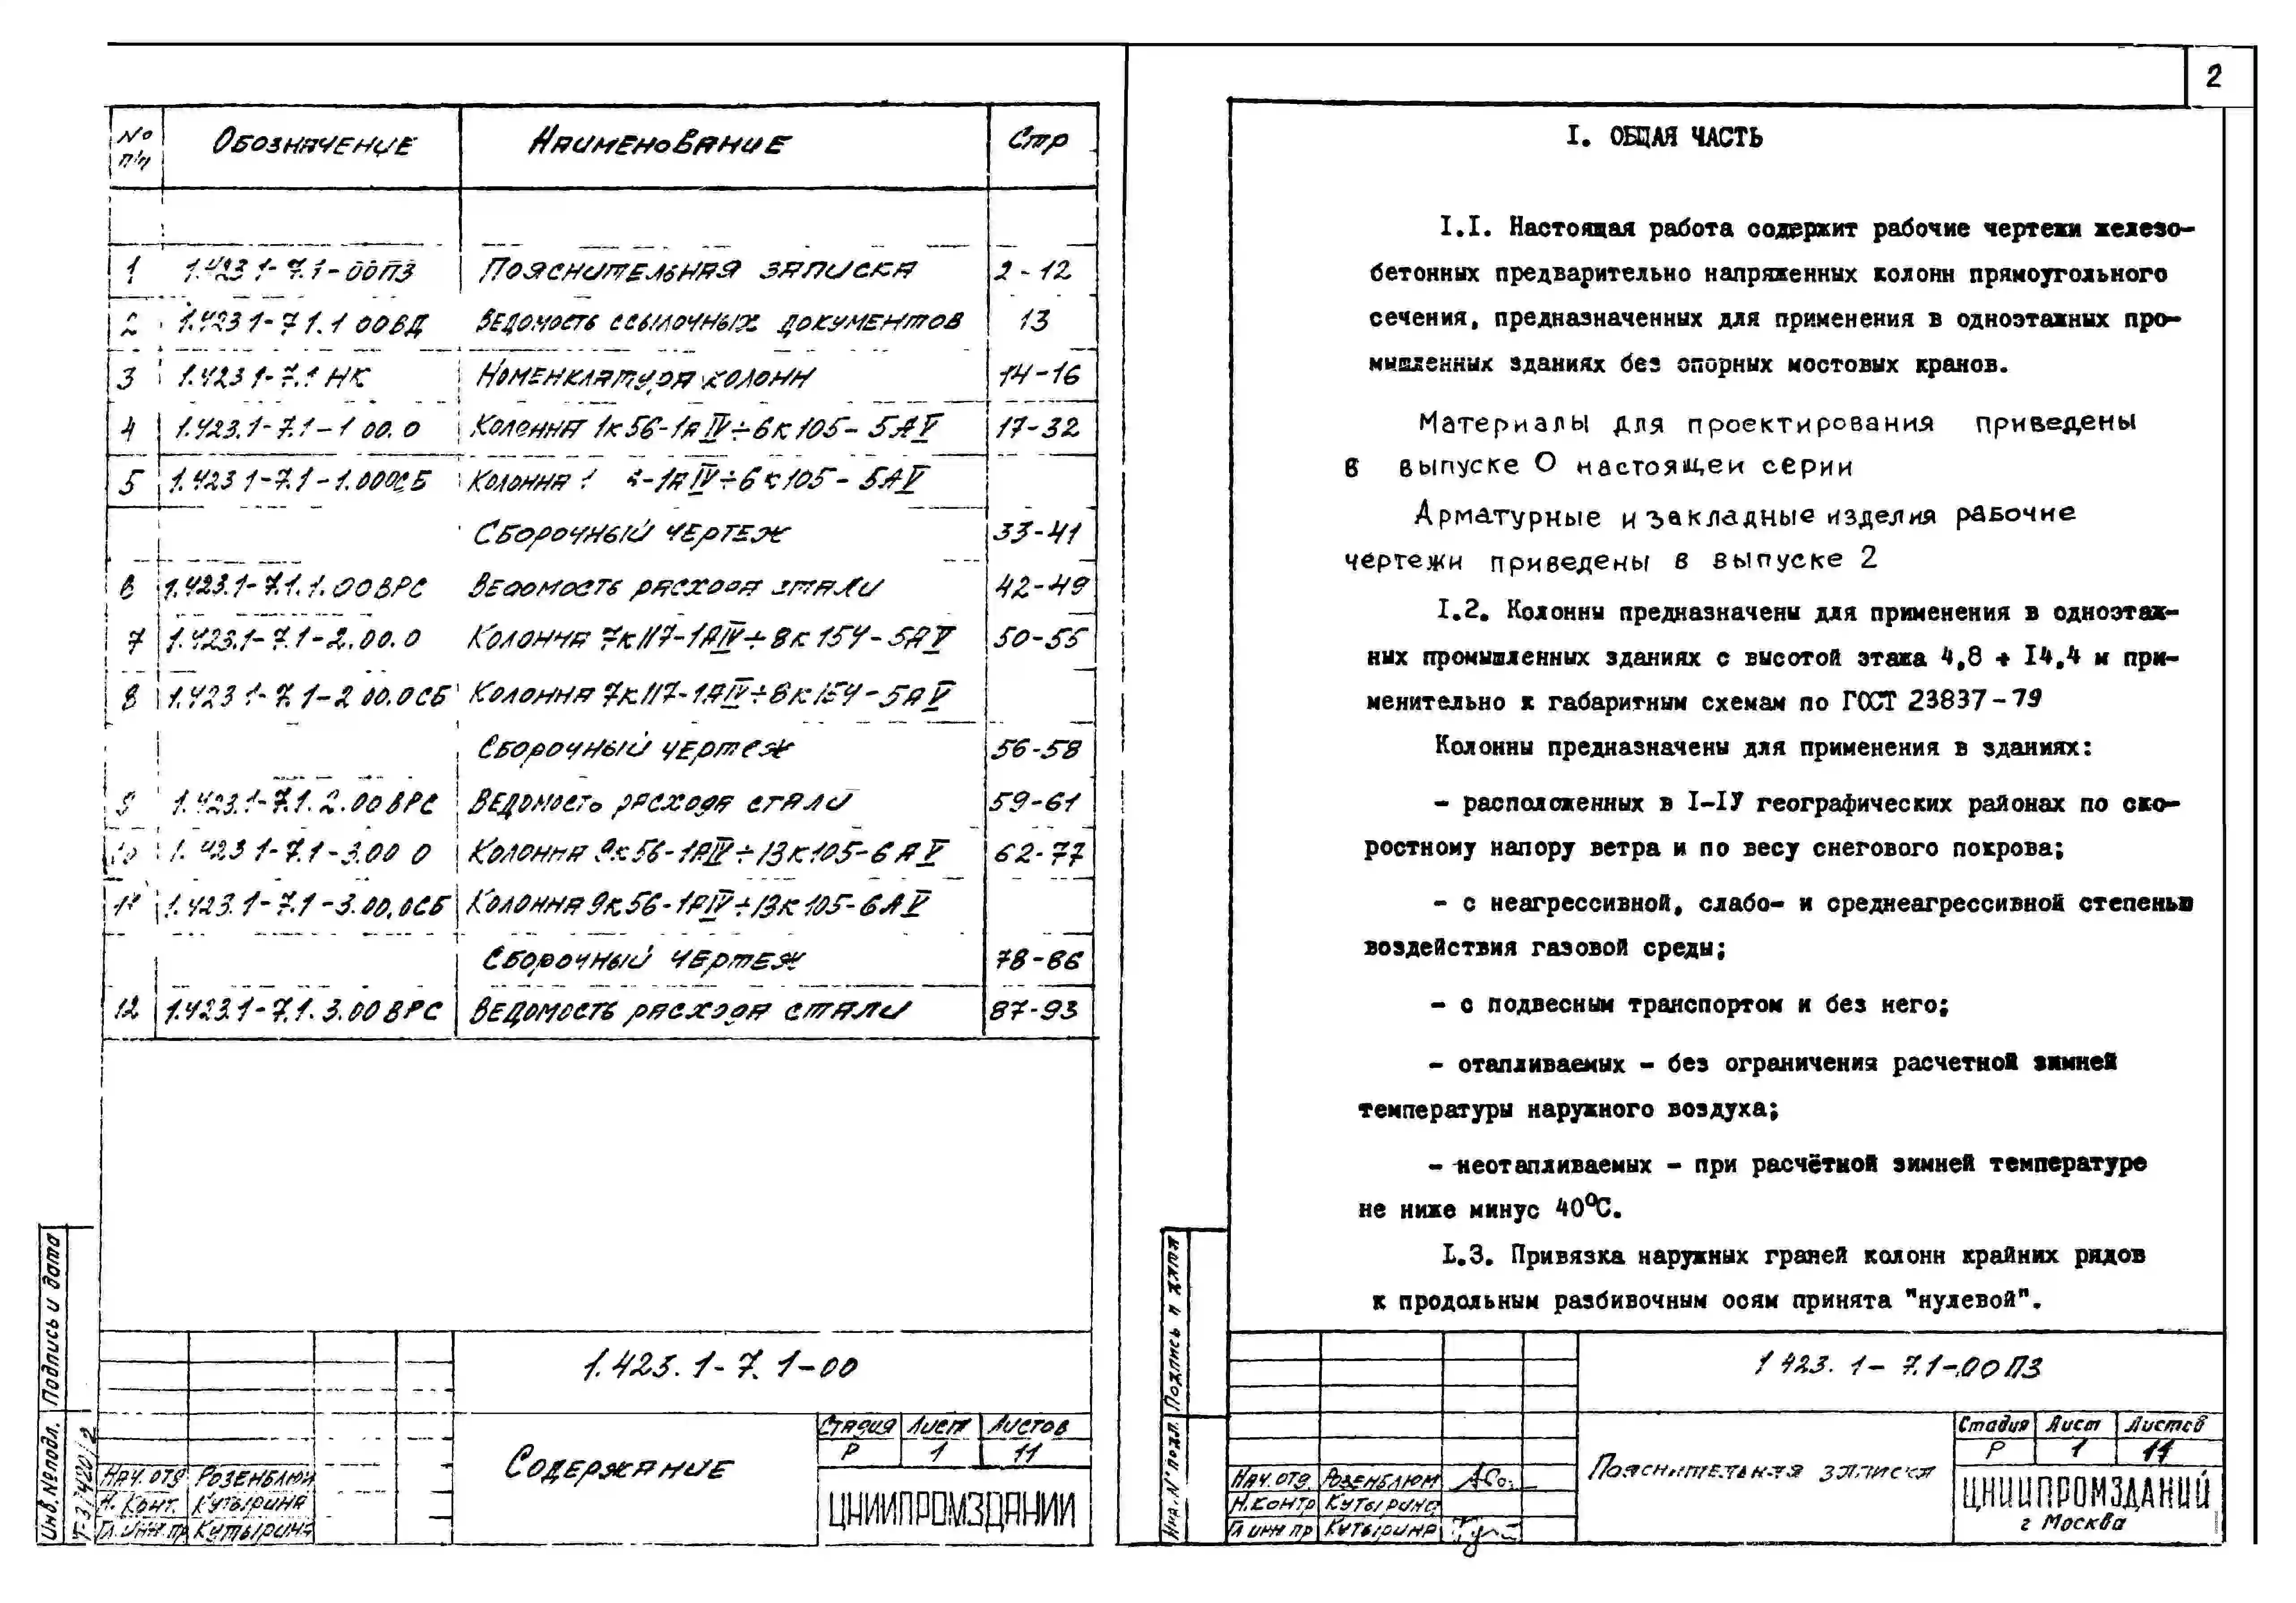 № п/п Обозначение Наименование Стр
1 1.423.1-7.1-00ПЗ Пояснительная записка 2-12
2 1.423.1-7.1.1 00ВД Ведомость ссылочных документов 13
3 1.423.1-7.1 НК Номенклатура колонн 14-16
4 1.423.1-7.1-1 00.0 Колонна 1К56-1АIV÷6К105-5АV 17-32
5 1.423.1-7.1-1.000СБ Колонна 1 -1АIV÷6К105-5АV
Сборочный чертеж 33-41
6 1.423.1-7.1.1.00ВРС Ведомость расхода стали 42-49
7 1.423.1-7.1-2.00.0 Колонна 7К117-1АIV÷8К154-5АV 50-55
8 1.423.1-7.1-2 00.0СБ Колонна 7К117-1АIV÷8К154-5АV
Сборочный чертеж 56-58
9 1.423.1-7.1.2.00ВРС Ведомость расхода стали 59-61
10 1.423.1-7.1-3.00 0 Колонна 9К56-1АIV÷13К105-6АV 62-77
11 1.423.1-7.1-3.00.0СБ Колонна 9К56-1АIV÷13К105-6АV
Сборочный чертеж 78-86
12 1.423.1-7.1.3.00ВРС Ведомость расхода стали 87-93
1.423.1-7.1-00
Содержание
Стадия Лист Листов
Р 1 11
Нач. отд Розенблюм
Н. Конт. Кутырина
Гл. инж пр Кутырина
ЦНИИПРОМЗДАНИИ
Инв. № подл. Подпись и дата
Т-3/420/2
2
I. ОБЩАЯ ЧАСТЬ
I.I. Настоящая работа содержит рабочие чертежи железо-
бетонных предварительно напряженных колонн прямоугольного
сечения, предназначенных для применения в одноэтажных про-
мышленных зданиях без опорных мостовых кранов.
Материалы для проектирования приведены
в выпуске 0 настоящей серии
Арматурные и закладные изделия рабочие
чертежи приведены в выпуске 2
I.2. Колонны предназначены для применения в одноэтаж-
ных промышленных зданиях с высотой этажа 4,8 ÷ 14,4 м при-
менительно к габаритным схемам по ГОСТ 23837-79
Колонны предназначены для применения в зданиях:
- расположенных в I-IУ географических районах по ско-
ростному напору ветра и по весу снегового покрова;
- с неагрессивной, слабо- и среднеагрессивной степенью
воздействия газовой среды;
- с подвесным транспортом и без него;
- отапливаемых - без ограничения расчетной зимней
температуры наружного воздуха;
- неотапливаемых - при расчётной зимней температуре
не ниже минус 40°С.
I.3. Привязка наружных граней колонн крайних рядов
к продольным разбивочным осям принята "нулевой".
1 423.1-7.1-00ПЗ
Пояснительная записка
Стадия Лист Листов
Р 1 11
Нач. отд. Розенблюм
Н.контр Кутырина
Гл инж пр Кутырина
ЦНИИПРОМЗДАНИЙ
г Москва
Инв. № подл. Подпись и дата